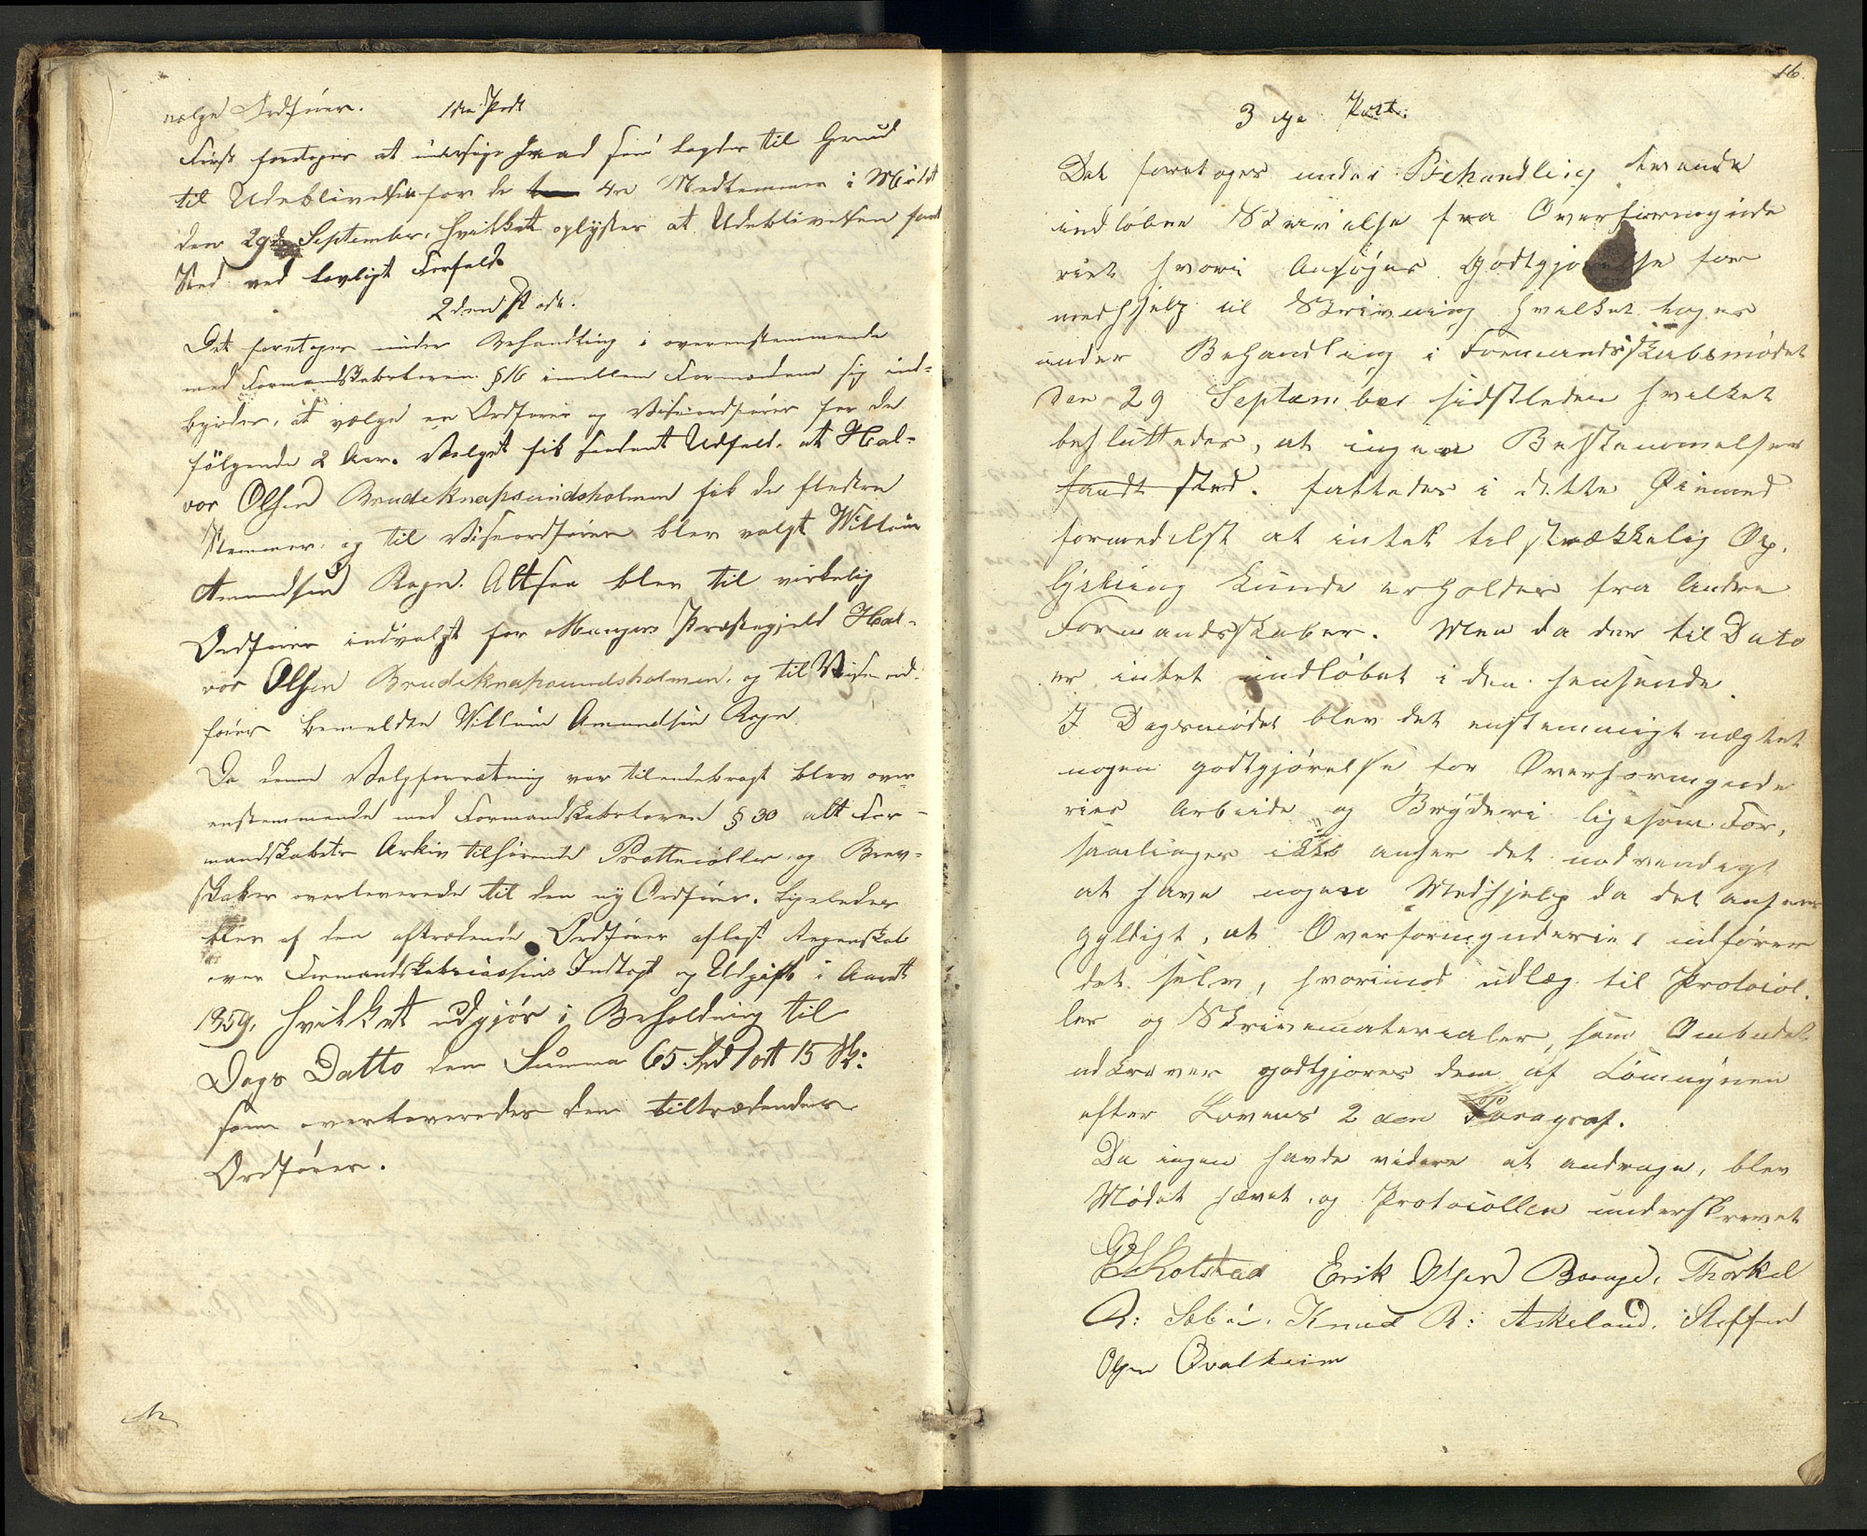 vælge Ordfører.
1ste Post
Først foretoges at undersøge hvad som lagdes til Grund
til Udeblivelsen for de 4re Medlemmer i Mødet
den 29de September, hvilket oplystes at Udeblivelsen fandt
Sted ved lovligt Forfald.
2den Post.
Det foretoges under Behandling i overenstemmende
med Formandskabsloven § 16 imellem Formændene sig ind-
byrdes, at vælge en Ordfører og Viseordfører for de
følgende 2 Aar. Valget fik saadant Udfald at Hal-
vor Olsen Brudeknapsundsholmen fik de fleste
Stemmer, og til Viseordfører blev valgt Willum
Amundsen Rogn. Altsaa blev til virkelig
Ordfører indvalgt for Mangers Præstegjeld Hal-
vor Olsen Brudeknapsundsholmen, og til Viseord-
fører bemeldte Willum Amundsen Rogn
Da denne Valgforretning var tilendebragt blev over-
enstemmende med Formandskabsloven § 30 alt For-
mandskabets Arkiv tilhørende Prottocoller og Brev-
skaber overleverede til den ny Ordfører. Ligeledes
blev af den aftrædende Ordfører aflagt Regnskab
over Formandskabscassens Indtægt og Udgift i Aaret
1859, hvilket udgjør i Beholdning til
Dags Datto den Summa 65 Spd 1 ort 15 Sk:
som overleveredes den tiltrædende
Ordfører.
16.
3 die Post:
Det foretoges under Behandling derende
indløbne Skrivelse fra Overformynde
riet hvori Ansøges Godtgjørelse for
medhjelp til Skrivning hvilket toges
under Behandling i Formandsskabsmødet
den 29 September sidstleden hvilket
besluttedes, at ingen Bestemmelser
fandt sted. fattedes i dette Øiemed
formedelst at intet tilstrækkelig Op-
lysning kunde erholdes fra Andre
Formandsskaber. Men da der til Dato
er intet indløbet i den henseende.
I Dagsmødet blev det enstemmigt nægtet
nogen godtgjørelse for Overformynde
riets Arbeide og Bryderi ligesom For-
samlingen ikke anser det nødvendigt
at have nogen Medhjelp da det ansees
gyldigt, at Overformynderiet udfører
det selv, hvorimod udlæg til Protocol-
ler og Skrivematerialer, som Ombudet
udkræver godtgjøres dem af Commynen
efter Lovens 2 den Paragraf.
Da ingen havde videre at andrage, blev
Mødet hævet og Protocollen underskrevet
Skolstad Erik Olsen Bauge, Thorkel
R: Sæbø. Knud R: Askeland. Steffen
Olsen Qvalheim